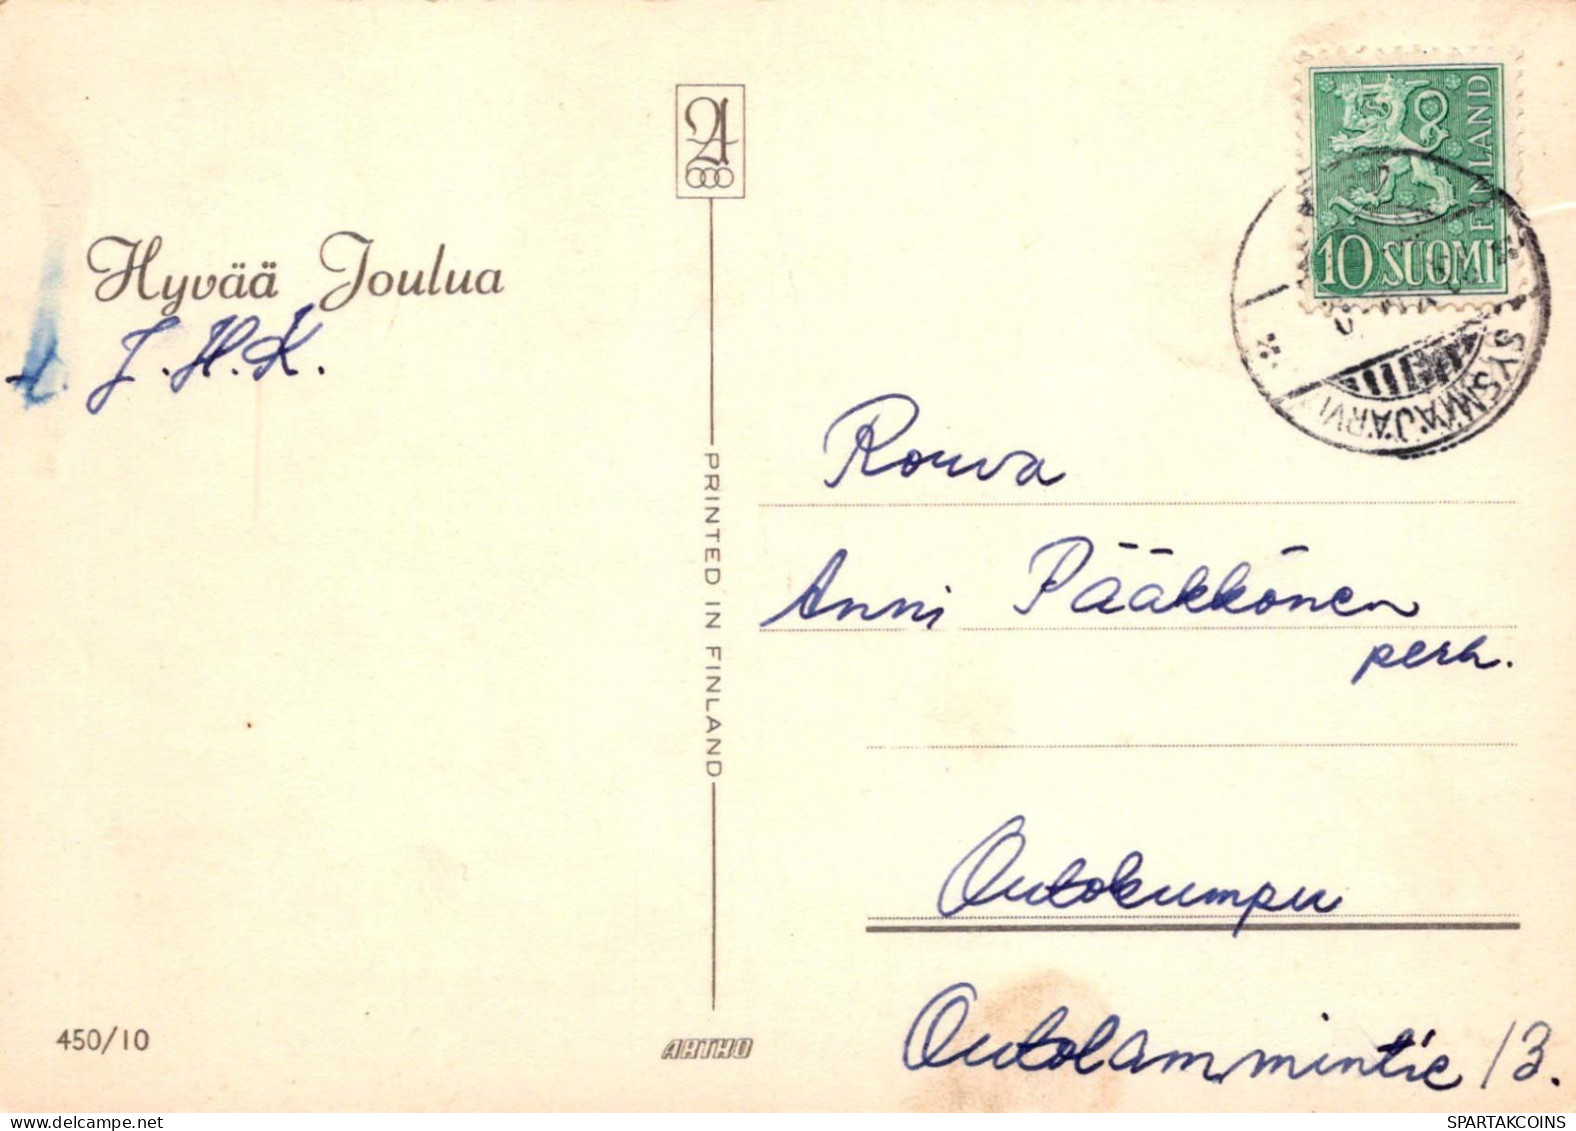 Hyvää Joulua
t. J.H.K.
450/10
A
600
PRINTED IN FINLAND
ARTKO
10 SUOMI
FINLAND
SYSMÄJÄRVI
Rouva
Anni Pääkkönen
perh.
Outokumpu
Outolammintie 13.
SPARTAKCOINS